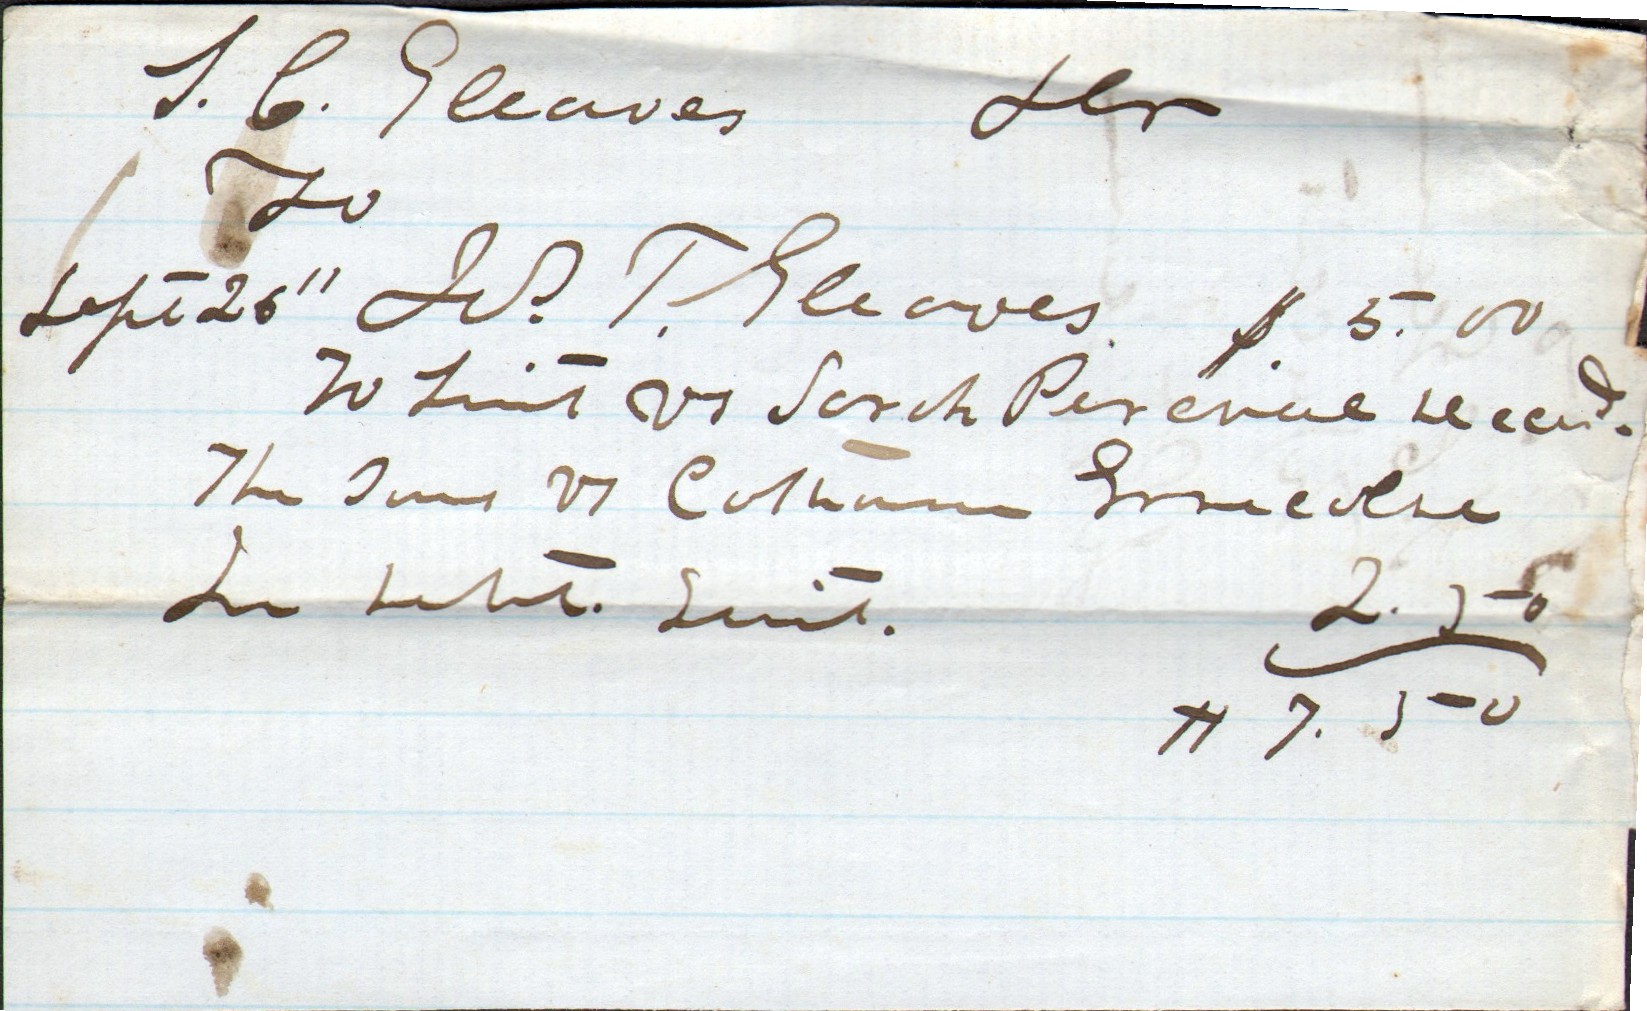 S. C. Gleaves Dr
To
Sept 26" Jno. T. Gleaves $ 5.00
To Suit vs Sarah Percival Decd.
The Same vs
In Debt. Suit. 2.50
$ 7.50